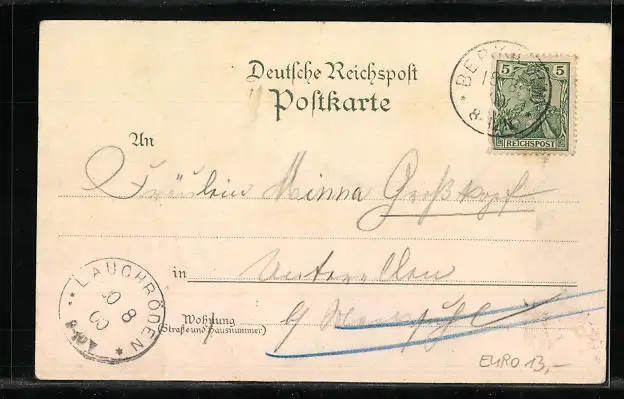 Deutsche Reichspost
Postkarte
5 5
REICHSPOST
An
Fräulein Minna Großkopf
in Unterellen
Wohnung
(Straße und Hausnummer)
LAUCHRÖDEN
8
00
EURO 13,-